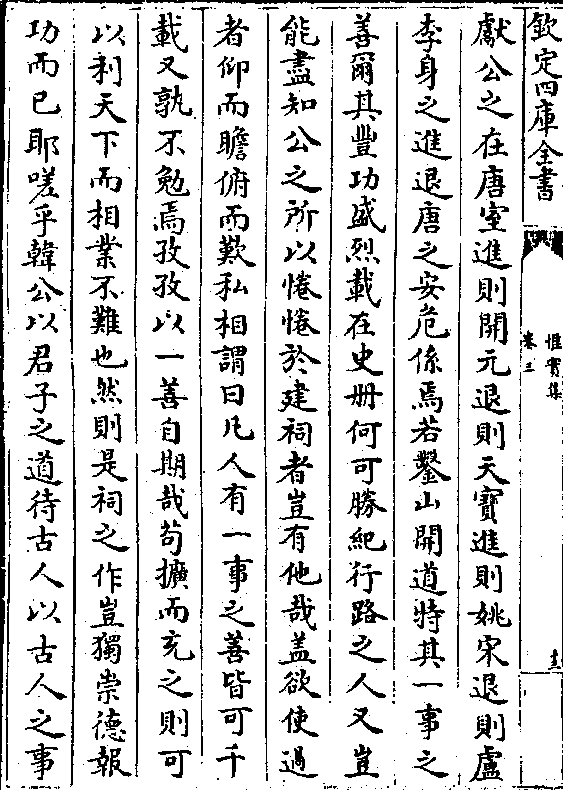 欽定四庫全書
惟實集
卷三
獻公之在唐室進則開元退則天寶進則姚宋退則盧
李身之進退唐之安危係焉若鑿山開道特其一事之
善爾其豐功盛烈載在史册何可勝紀行路之人又豈
能盡知公之所以惓惓於建祠者豈有他哉盖欲使過
者仰而瞻俯而歎私相謂曰凡人有一事之善皆可千
載又孰不勉焉孜孜以一善自期哉苟擴而充之則可
以利天下而相業不難也然則是祠之作豈獨崇德報
功而已耶嗟乎韓公以君子之道待古人以古人之事